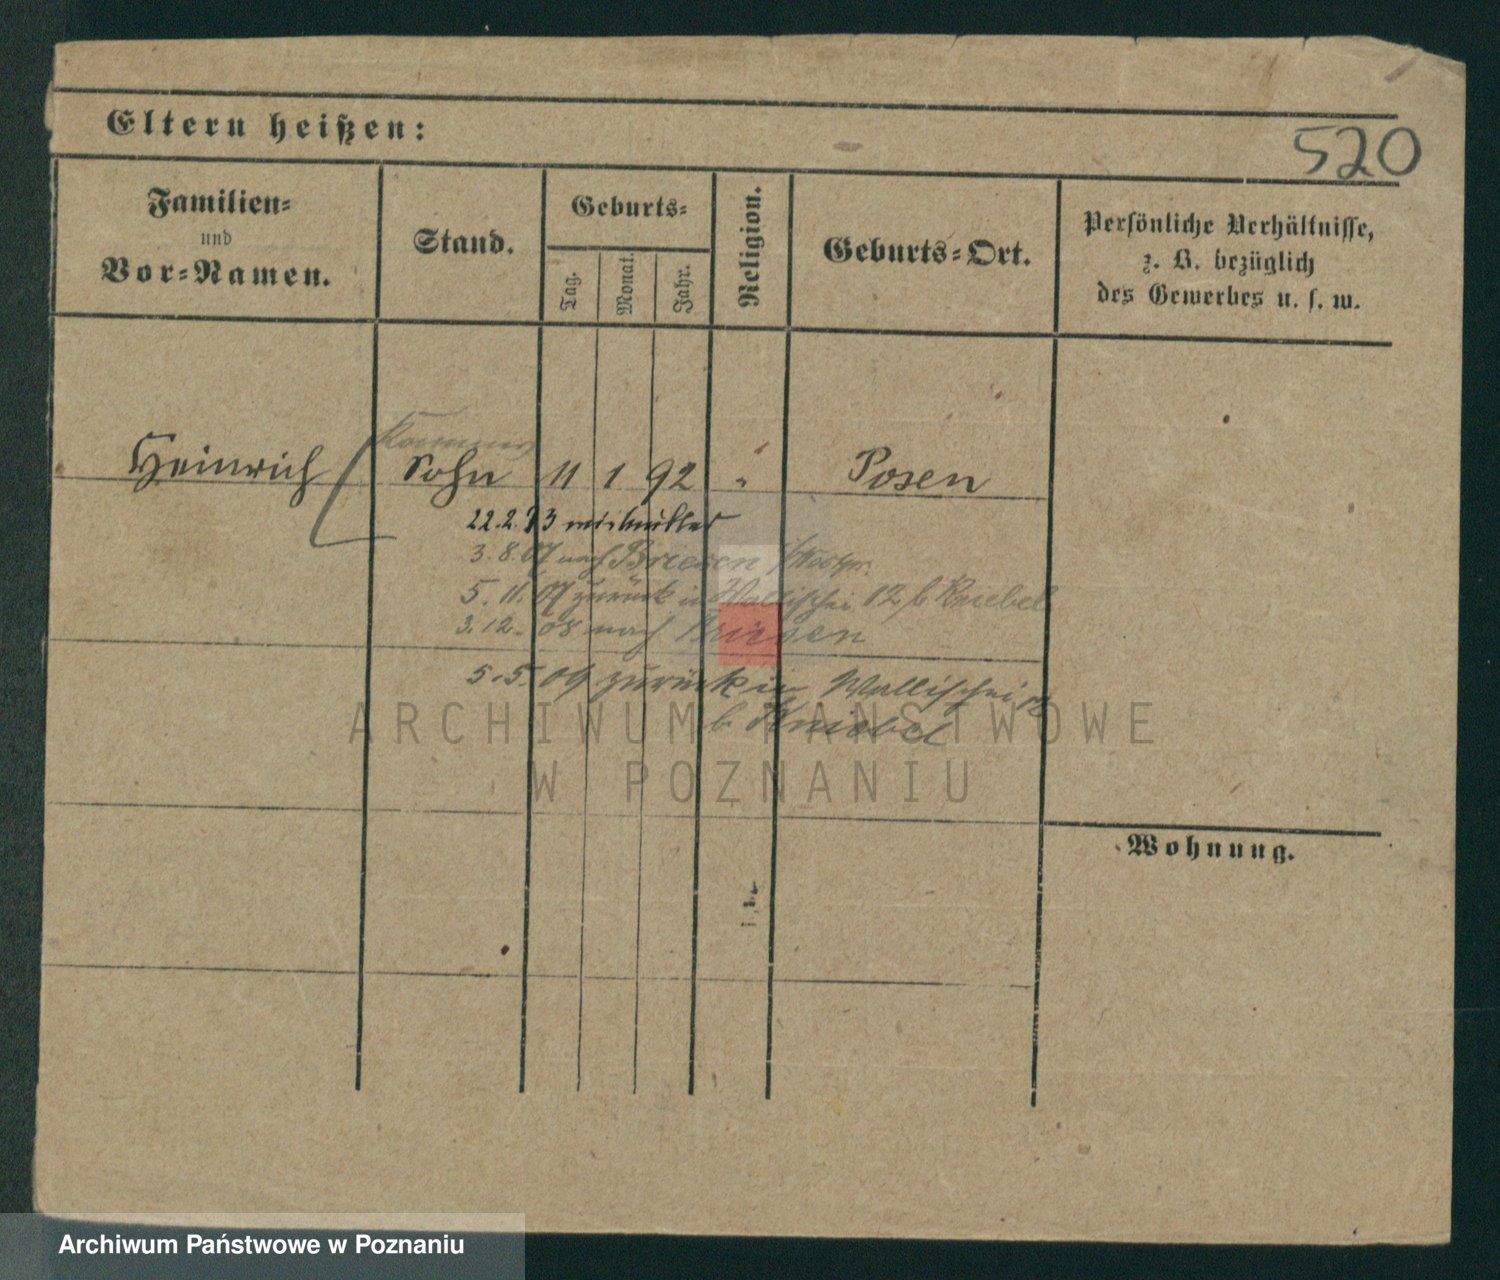 Eltern heißen:
520
Familien-
und
Vor-Namen.
Stand.
Geburts-
Tag.
Monat.
Jahr.
Religion.
Geburts-Ort.
Persönliche Verhältnisse,
z. B. bezüglich
des Gewerbes u. s. w.
Heinrich Sohn 11 1 92 " Posen
22.2.93
3.8.07 nach Briesen Westpr.
5.11.07 zurück in Wallischei 12 b Kniebel
3.12.08 nach Briesen
5.5.09 zurück in Wallischei
b Kniebel
ARCHIWUM PAŃSTWOWE
W POZNANIU
Wohnung.
Archiwum Państwowe w Poznaniu